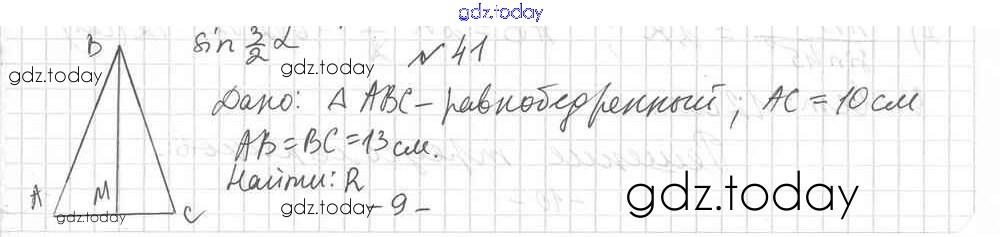 gdz.today
sin 3/2 α
№ 41
B
gdz.today
gdz.today
Дано: △ ABC – равнобедренный; AC = 10 см
AB = BC = 13 см.
Найти: R
A
M
C
gdz.today
gdz.today
- 9 -
gdz.today